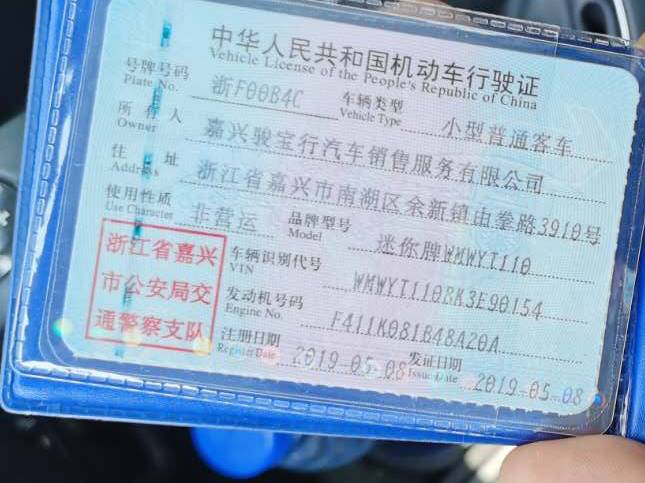 中华人民共和国机动车行驶证
Vehicle License of the People's Republic of China
号牌号码 浙F00B4C 车辆类型 小型普通客车
Plate No. Vehicle Type
所有人 嘉兴骏宝行汽车销售服务有限公司
Owner
住址 浙江省嘉兴市南湖区余新镇由拳路3910号
Address
使用性质 非营运 品牌型号 迷你牌WMWYT110
Use Character Model
浙江省嘉兴
市公安局交
通警察支队
车辆识别代号 WMWYT1108K3E90154
VIN
发动机号码 F411K081B48A20A
Engine No.
注册日期 2019-05-08 发证日期 2019-05-08
Register Date Issue Date